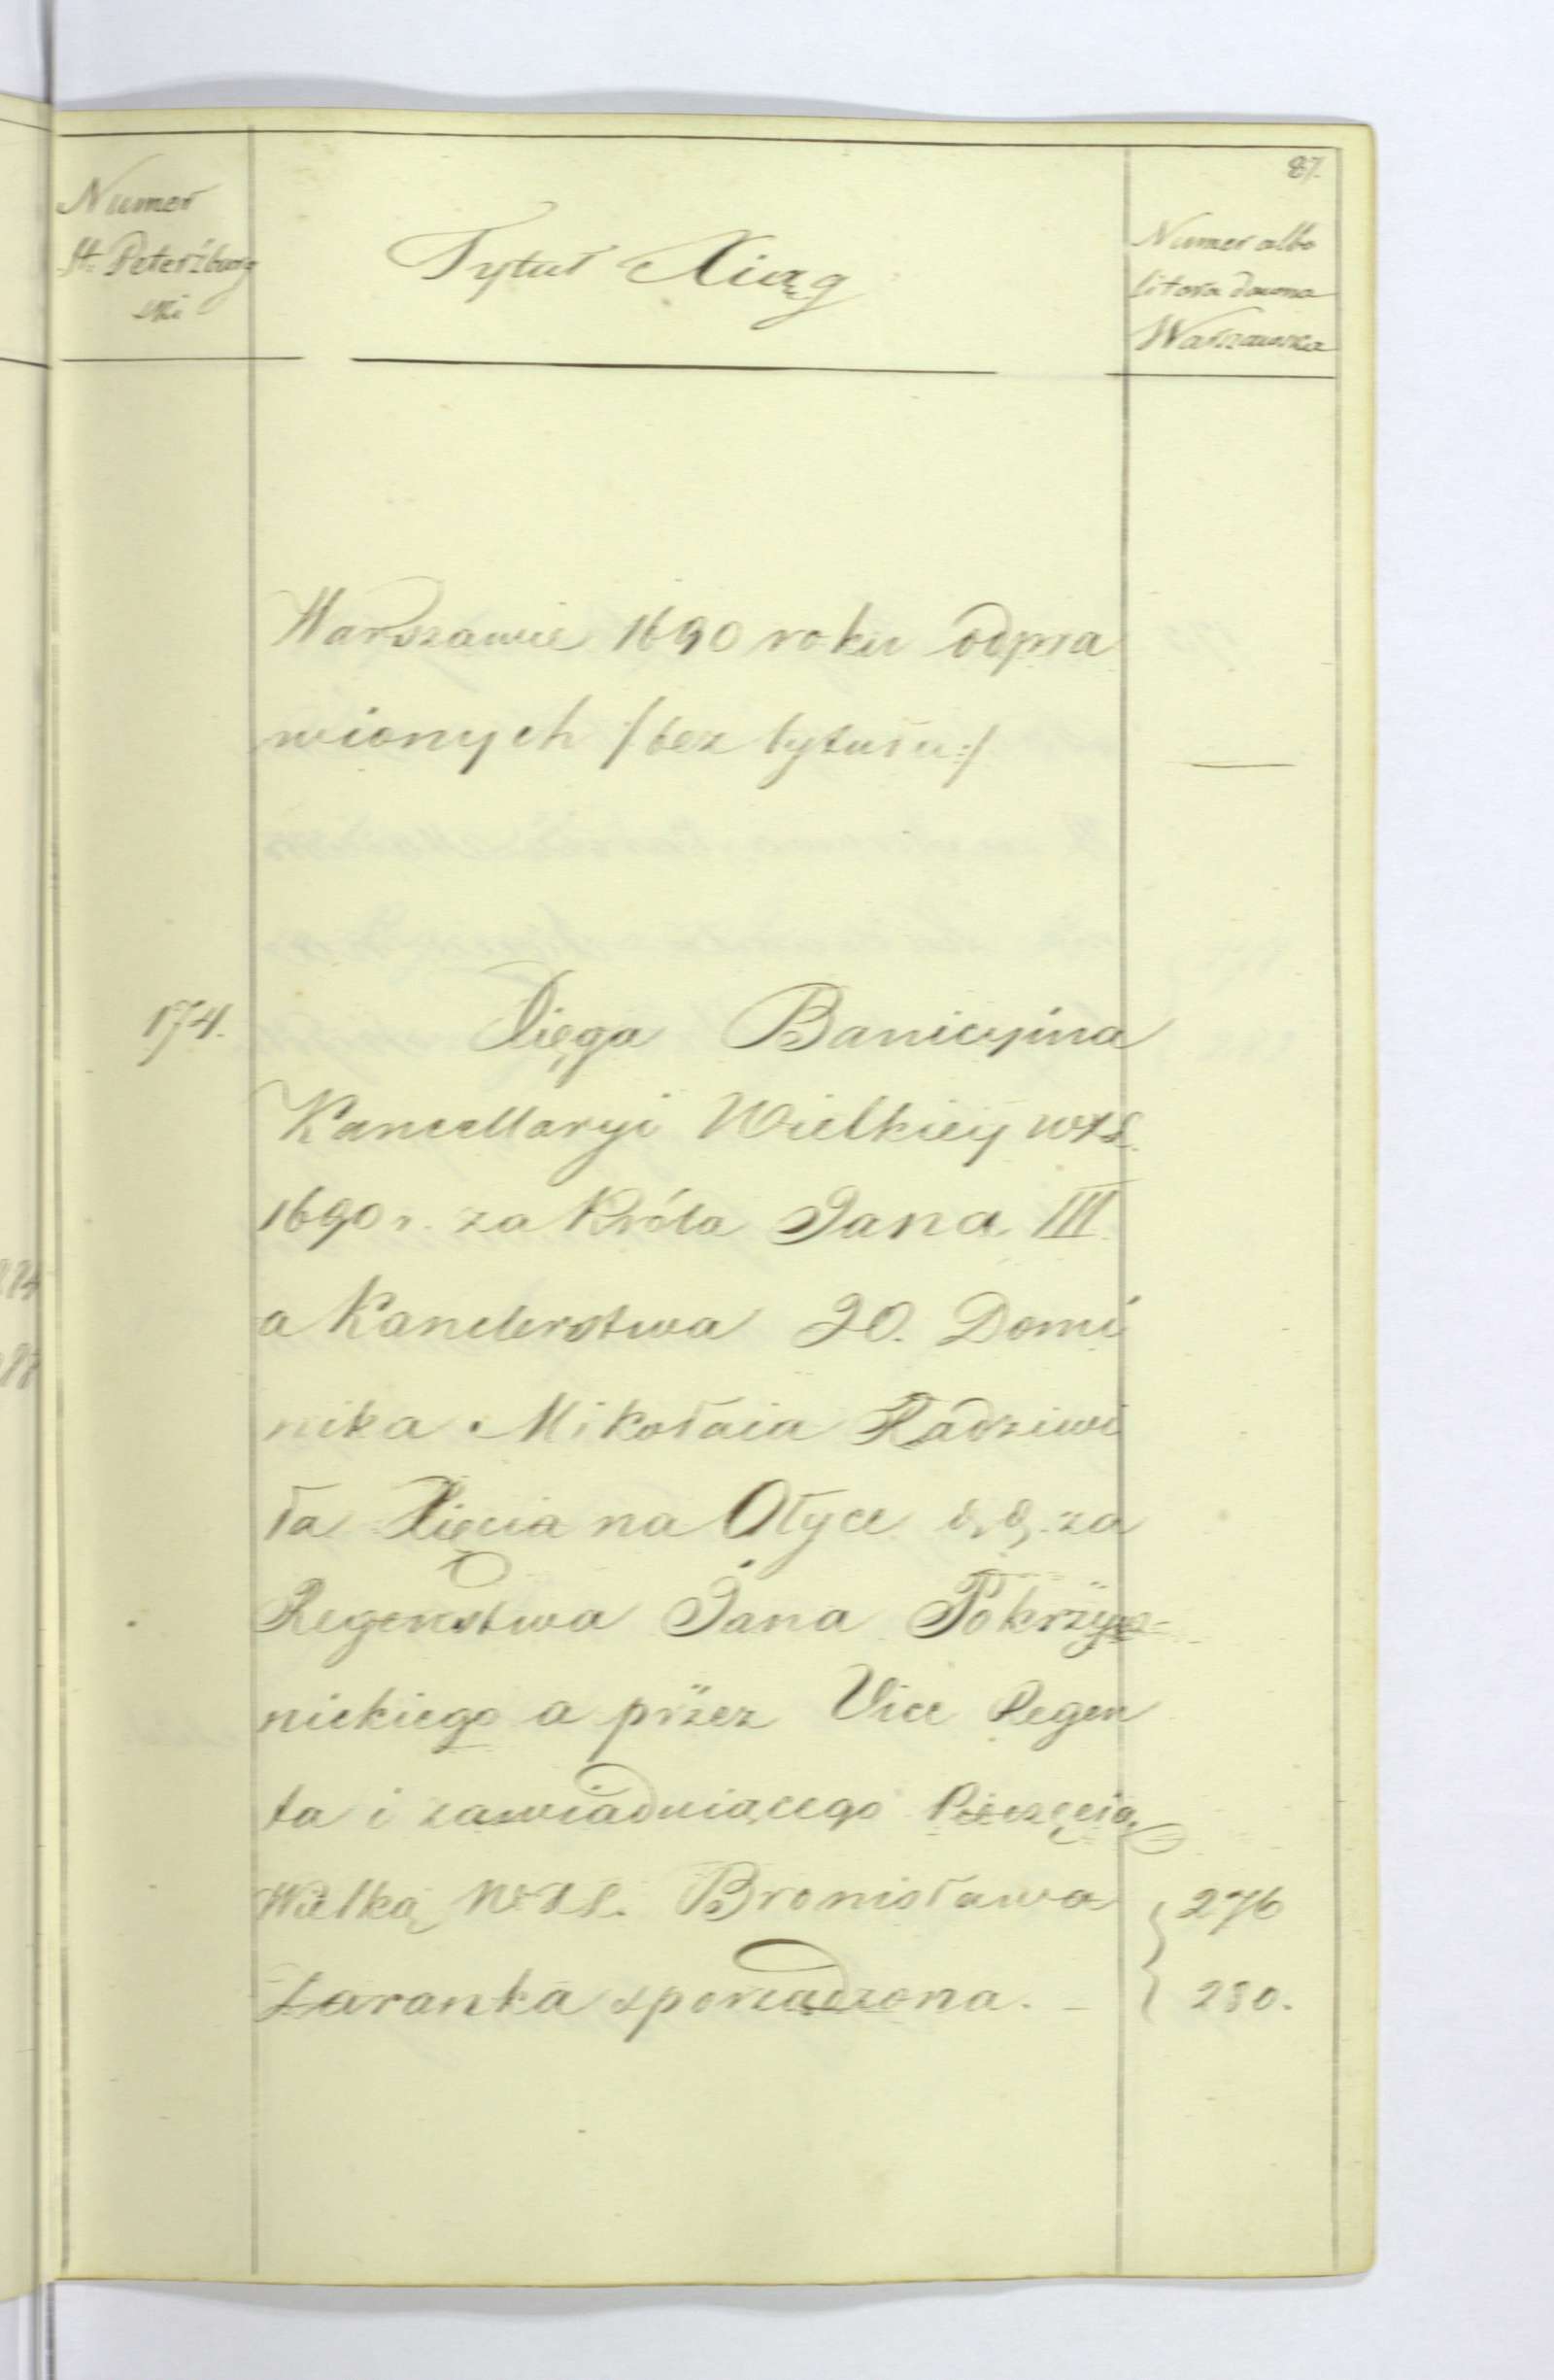 87.
Numer
St. Petersburg
ski
Tytuł Xiąg
Numer albo
litera dawna
Warszawska
Warszawie 1690 roku odpra
wionych /bez tytułu:/
174.
Xięga Banicyina
Kancellaryi Wielkiey WXL.
1690 r. za Króla Jana III
a Kanclerstwa JO. Domi
nika Mikołaia Radziwi
ła Xięcia na Ołyce &,&. za
Regenstwa Jana Pokrzyw=
nickiego a przez Vice Regen
ta i zawiaduiącego Pieczęcią
Wielką WXL. Bronisława
Żaranka sporządzona. -
276
280.